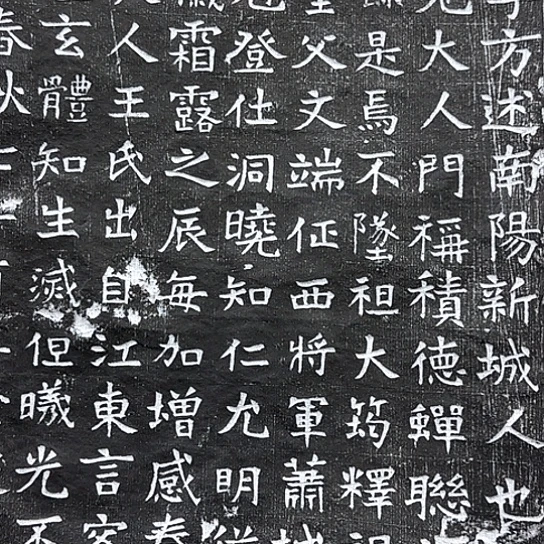 方述南陽新城人也
大人門稱積德蟬聯
是焉不墜祖大筠釋
父文端征西將軍蕭
登仕洞曉知仁尤明
霜露之辰每加增感
人王氏出自江東言
玄體知生滅但曦光不
春秋